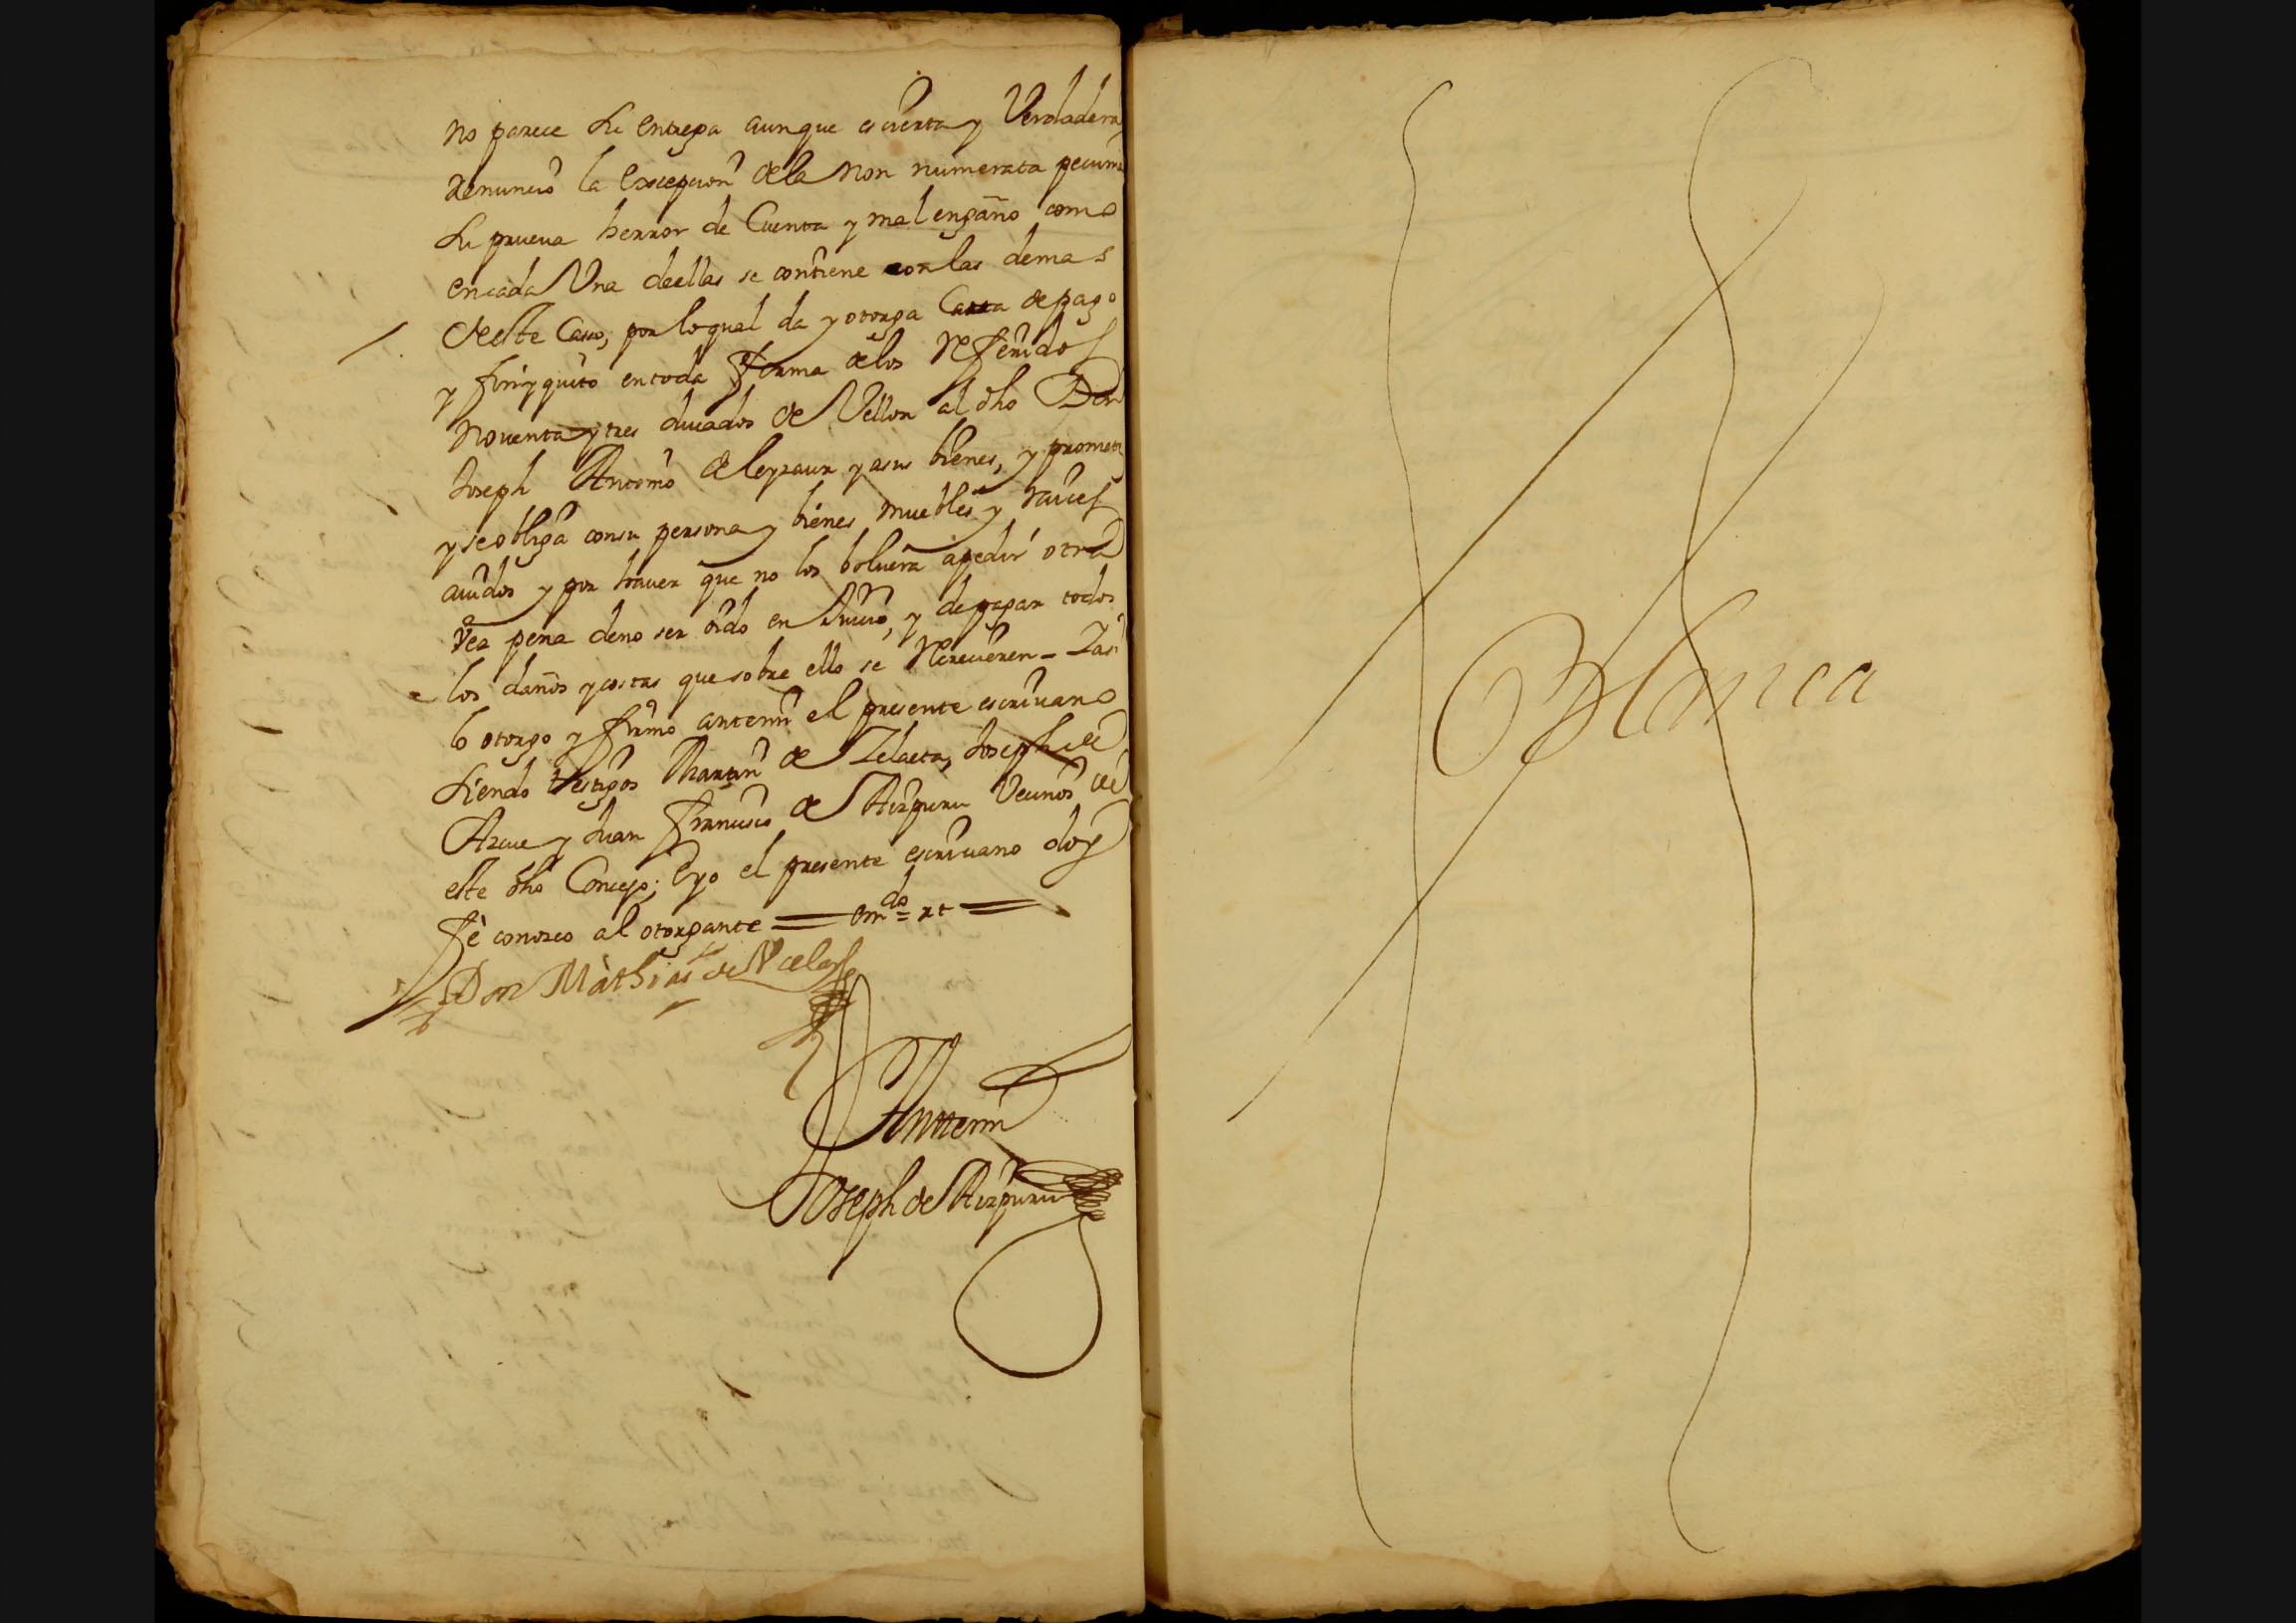 no parece su entrega aunque es cierta y Verdadera
renuncio la excepcion dela non numerata pecunia
su prueua herror de Cuenta y mal engaño como
en cada Vna de ellas se contiene con las demas
de este Casso, por lo qual da y otorga Carta de pago
y finiquito en toda forma de los Referidos
nouenta y tres ducados de Vellon al dho Don
Joseph Antonio de leyzaur y a sus bienes, y promete
y se obliga con su persona y bienes muebles y raices
auidos y por hauer que no los boluera a pedir otra
vez pena de no ser oido en Juicio, y de pagar todos
los daños y costas que sobre ello se Recrecieren - Y asi
lo otorgo y firmo ante mi el presente escriuano
siendo testigos Martin de Zelaeta, Joseph de
Azcue y Juan Francisco de Aizpuru Vecinos de
este dho Concejo; E yo el presente escriuano doy
fè conozco al otorgante = em.do = rt =
Don Mathias de
Ante mi
Joseph de Aizpuru
Blanca